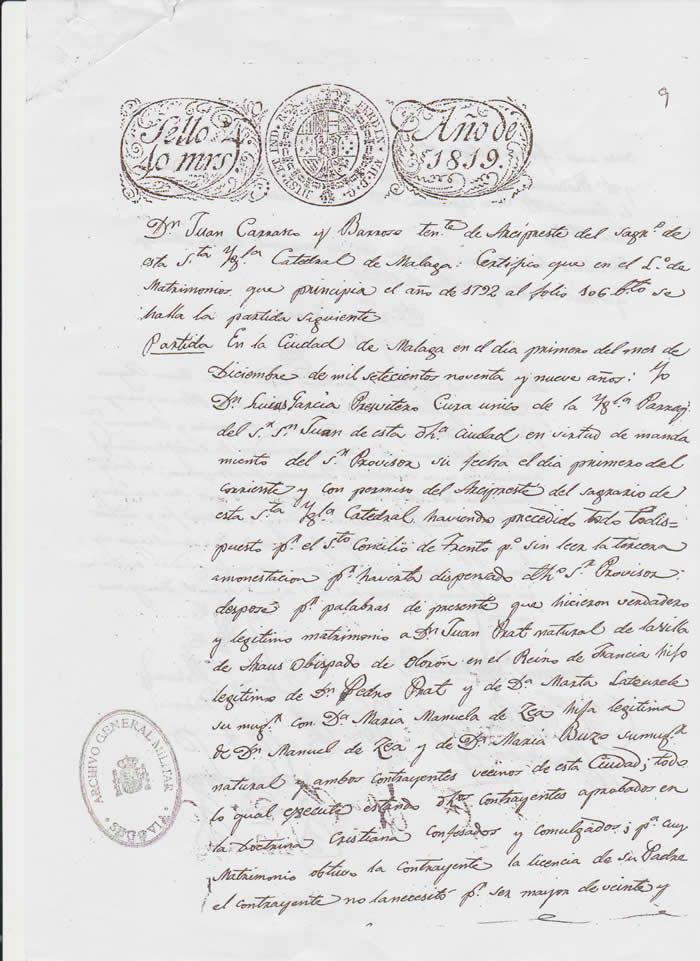 9
Sello 4º
40 mrs
HISP. ET IND. REX FERDIN. VII. D. G.
Año de
1819.
Dn. Juan Carrasco y Barroso tente. de Arcipreste del Sagro. de
esta Sta. Ygla. Catedral de Malaga: Certifico que en el Lo. de
Matrimonios, que principia el año de 1792 al folio 106 bto se
halla la partida siguiente
Partida En la Ciudad de Malaga en el dia primero del mes de
Diciembre de mil setecientos noventa y nueve años: Yo
Dn. Luis Garcia Presvitero Cura unico de la Ygla. Parroql.
del Sr. Sn. Juan de esta dha. ciudad en virtud de manda
miento del Sr. Provisor su fecha el dia primero del
corriente y con permiso del Arcipreste del sagrario de
esta Sta. Ygla. Catedral, haviendo precedido todo lo dis=
puesto pr. el Sto. Concilio de Trento po. sin leer la tercera
amonestacion pr. haverla dispensado dho. Sr. Provisor:
desposé pr. palabras de presente que hicieron verdadero
y legitimo matrimonio a Dn. Juan Prat natural de la villa
de Araus Obispado de Olorón en el Reino de Francia hijo
legitimo de Dn. Pedro Prat y de Da. Marta
su mugr. con Da. Maria Manuela de Zea hija legitima
de Dn. Manuel de Zea y de Da. Maria Buzo su mugr.
natural y ambos contrayentes vecinos de esta Ciudad; todo
lo qual executé estando dhos. contrayentes aprobados en
la Doctrina Cristiana confesados y comulgados; pa. cuyo
Matrimonio obtuvo la contrayente la licencia de su Padre
el contrayente no la necesitó pr. ser mayor de veinte y
ARCHIVO GENERAL MILITAR